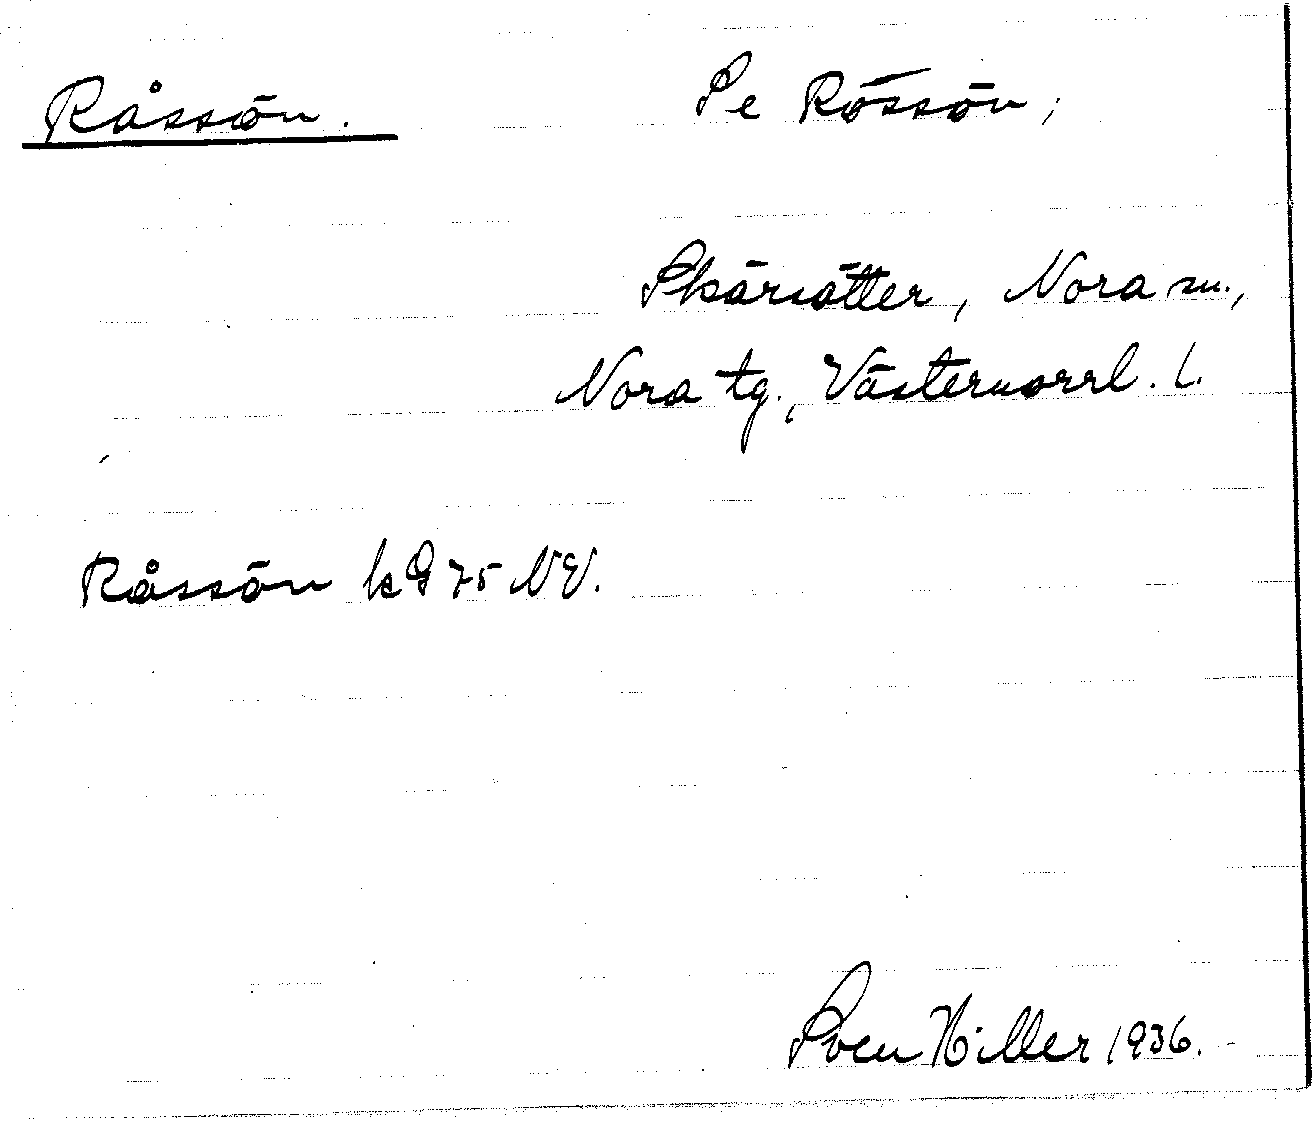 Råssön. Se Rössön;
Skärsätter, Nora sn.,
Nora tg., Västernorrl. l.
Råssön k G 75 NV.
Sven Hiller 1936.